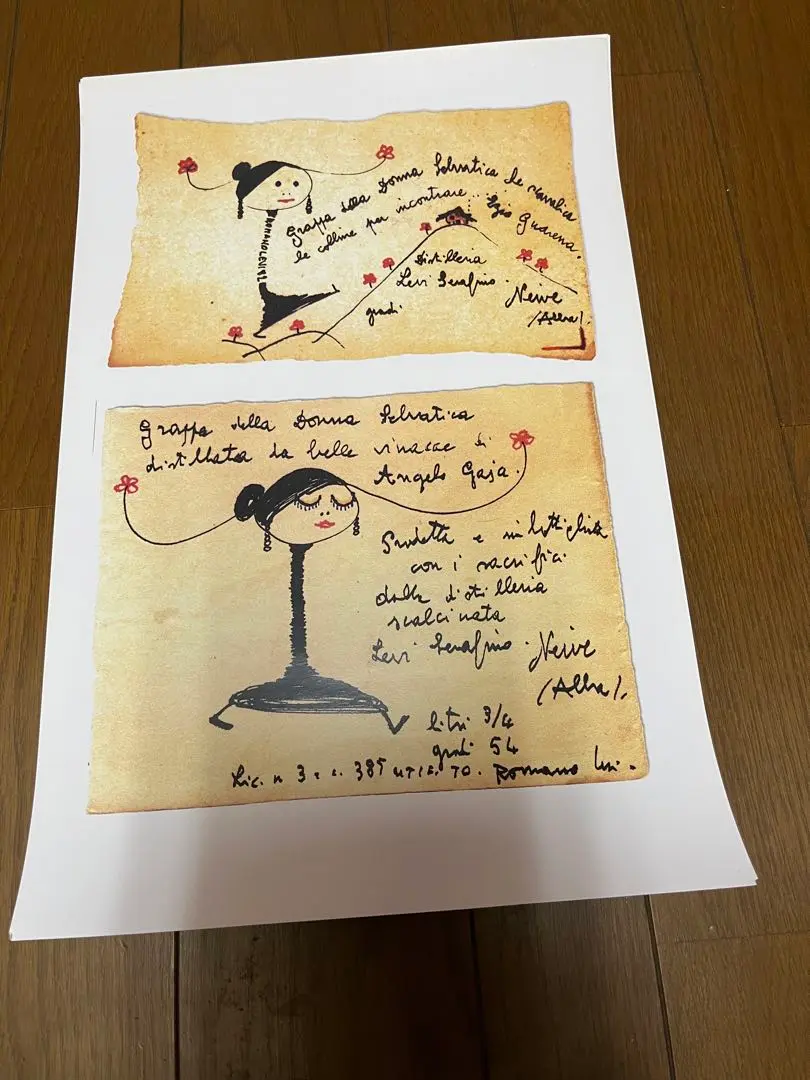 Grappa della Donna Selvatica che scavalica
le colline per incontrare ... Ezio Guarena.
ROMANOLEVI
Distilleria
Levi Serafino.
Neive
gradi.
(Alba).
Grappa della Donna Selvatica
distillata da belle vinacce di
Angelo Gaja.
e
con i sacrifici
dalla distilleria
scalcinata
Levi Serafino. Neive
(Alba).
litri 3/4
gradi 54
Lic. n 3 385 UTIF. TO. Romano Levi.